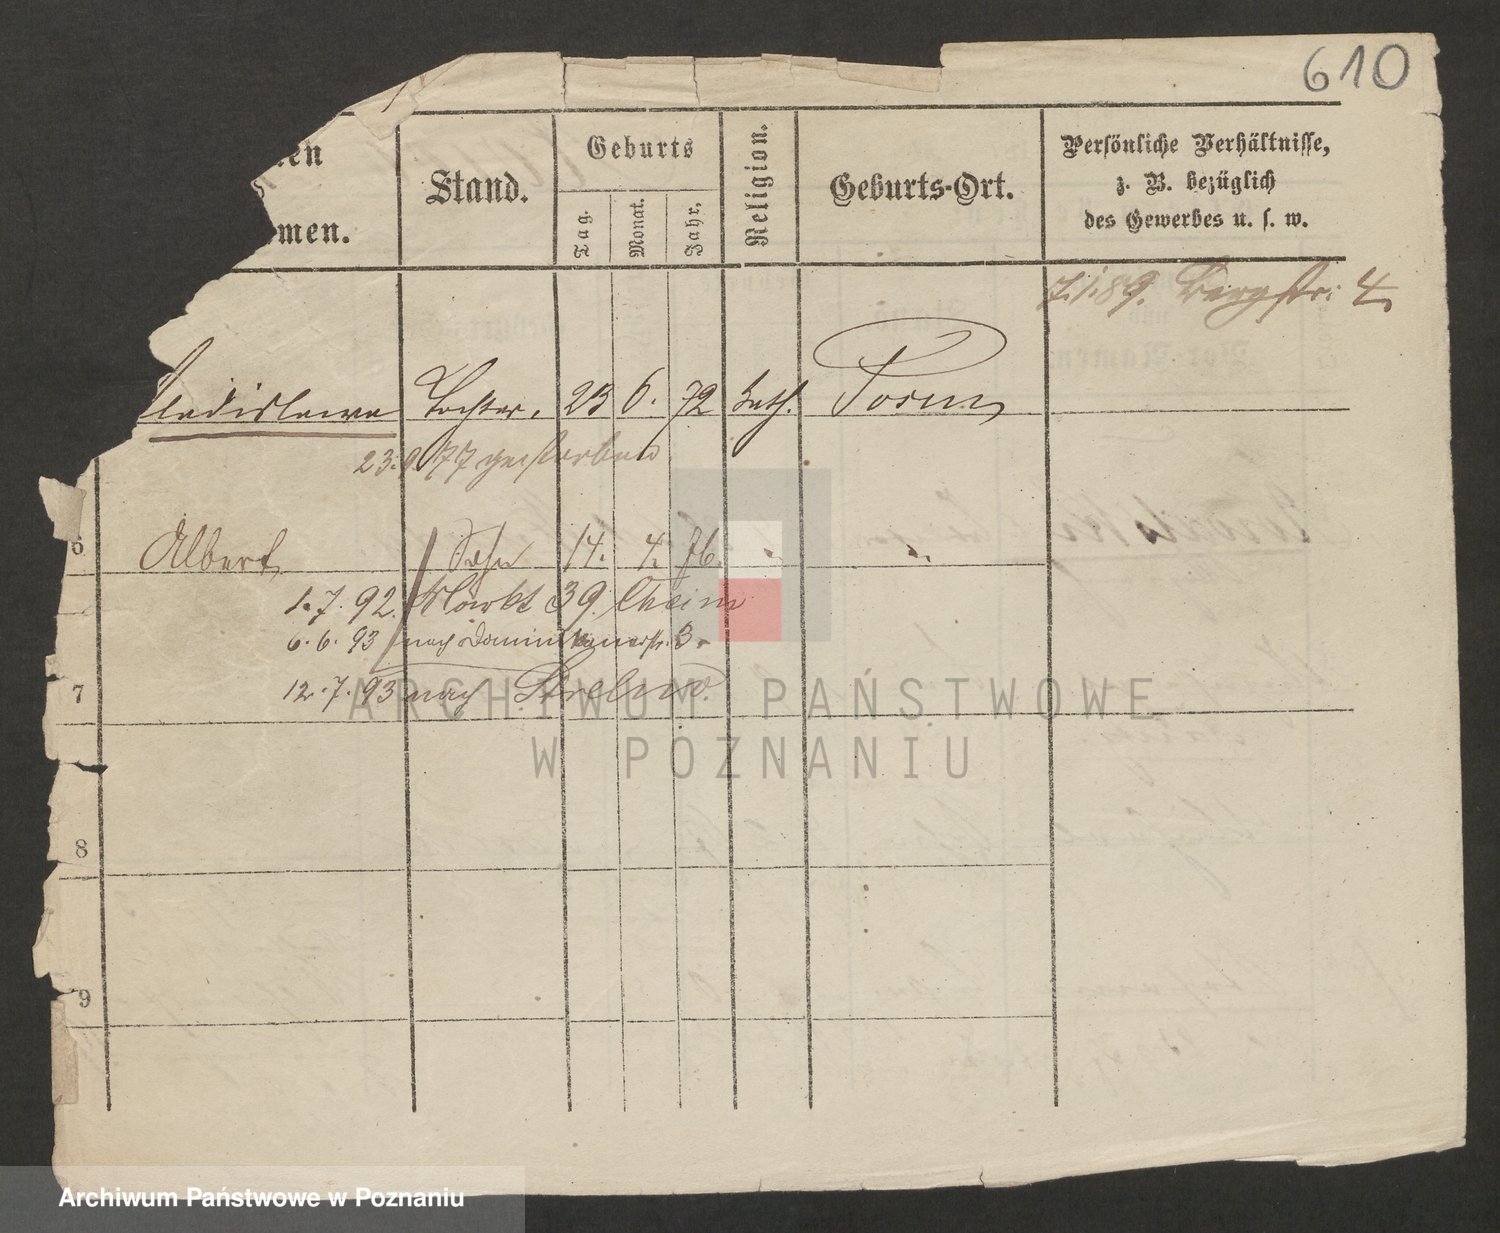 610
en
men.
Stand.
Geburts
Tag.
Monat.
Jahr.
Religion.
Geburts-Ort.
Persönliche Verhältnisse,
z. B. bezüglich
des Gewerbes u. s. w.
7.1.89. Bergstr. 4
ladislawa Tochter. 23 6. 72 kath. Posen
23.9.77 gestorben
6 Albert Sohn 14. 4. 76. " "
1.7.92. Markt 39
6.6.93 nach Dominikanerstr. 3.
7 12.7.93 nach Strelno
8
9
ARCHIWUM PAŃSTWOWE
W POZNANIU
Archiwum Państwowe w Poznaniu